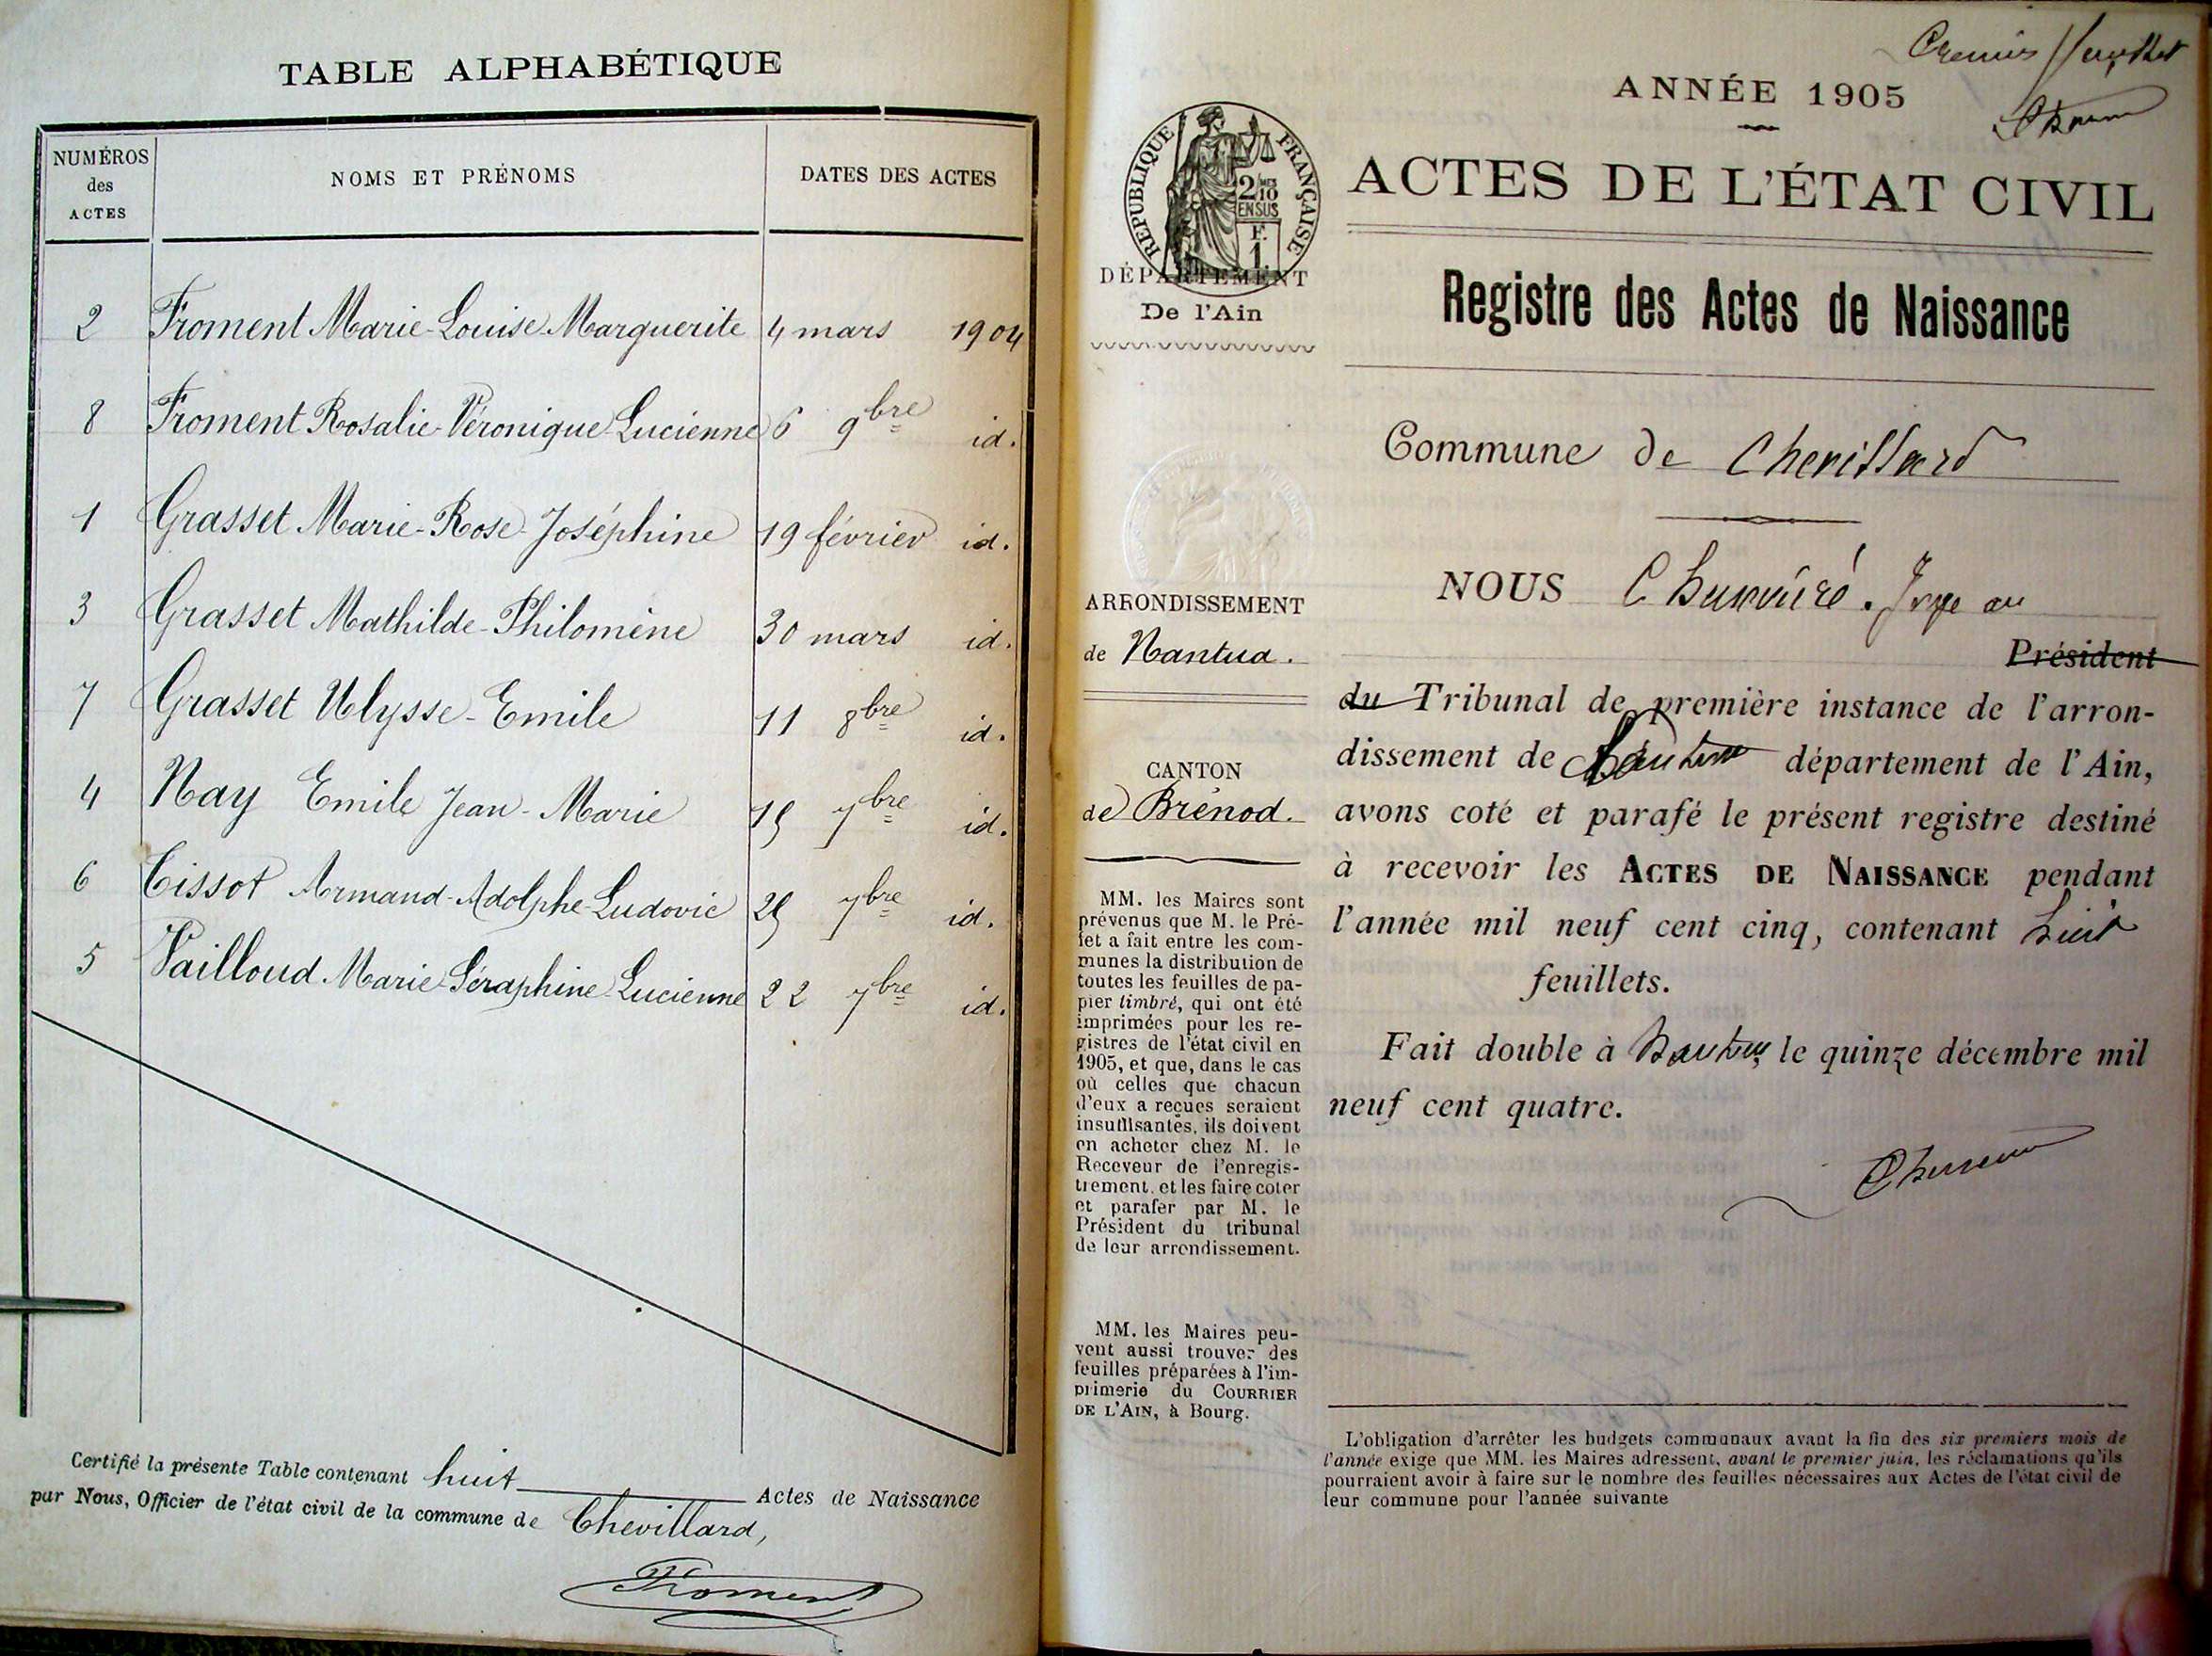 TABLE ALPHABÉTIQUE
NUMÉROS des ACTES NOMS ET PRÉNOMS DATES DES ACTES
2 Froment Marie-Louise-Marguerite 4 mars 1904
8 Froment Rosalie-Véronique-Lucienne 6 9bre id.
1 Grasset Marie-Rose-Joséphine 19 février id.
3 Grasset Mathilde-Philomène 30 mars id.
7 Grasset Ulysse-Emile 11 8bre id.
4 Nay Emile Jean-Marie 15 7bre id.
6 Tissot Armand-Adolphe-Ludovic 25 7bre id.
5 Vailloud Marie-Séraphine-Lucienne 22 7bre id.
Certifié la présente Table contenant huit Actes de Naissance
par Nous, Officier de l'état civil de la commune de Chevillard,
Froment
ANNÉE 1905
ACTES DE L'ÉTAT CIVIL
RÉPUBLIQUE FRANÇAISE
2/10
EN SUS
F.
1.
DÉPARTEMENT
De l'Ain
Registre des Actes de Naissance
Commune de Chevillard
ARRONDISSEMENT
de Nantua.
CANTON
de Brénod.
MM. les Maires sont
prévenus que M. le Pré-
fet a fait entre les com-
munes la distribution de
toutes les feuilles de pa-
pier timbré, qui ont été
imprimées pour les re-
gistres de l'état civil en
1905, et que, dans le cas
où celles que chacun
d'eux a reçues seraient
insuffisantes, ils doivent
en acheter chez M. le
Receveur de l'enregis-
trement, et les faire coter
et parafer par M. le
Président du tribunal
de leur arrondissement.
MM. les Maires peu-
vent aussi trouver des
feuilles préparées à l'im-
primerie du COURRIER
DE L'AIN, à Bourg.
NOUS Juge au
Président
du Tribunal de première instance de l'arron-
dissement de Nantua département de l'Ain,
avons coté et parafé le présent registre destiné
à recevoir les ACTES DE NAISSANCE pendant
l'année mil neuf cent cinq, contenant huit
feuillets.
Fait double à Nantua, le quinze décembre mil
neuf cent quatre.
L'obligation d'arrêter les budgets communaux avant la fin des six premiers mois de
l'année exige que MM. les Maires adressent, avant le premier juin, les réclamations qu'ils
pourraient avoir à faire sur le nombre des feuilles nécessaires aux Actes de l'état civil de
leur commune pour l'année suivante